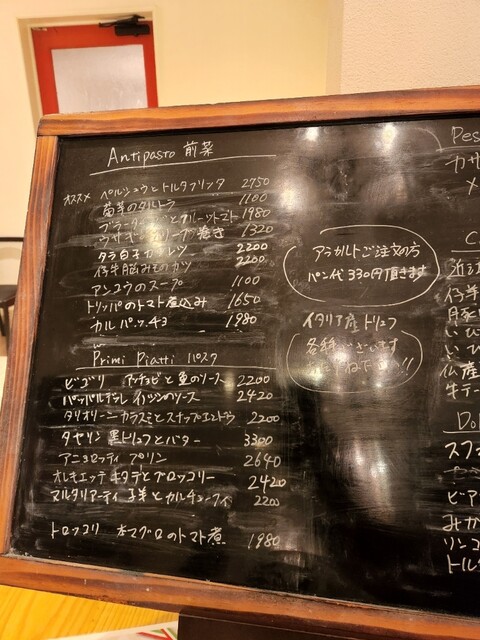 Antipasto 前菜
オススメ ペルシュウとトルタフリッタ 2750
菊芋のタルトラ 1100
ブラータチーズとフルーツトマト 1980
ウサギ オリーブ巻き 1320
タラ白子カツレツ 2200
仔牛脳みそのカツ 2200
アンコウのスープ 1100
トリッパのトマト煮込み 1650
カルパッチョ 1980
Primi Piatti パスタ
ビゴリ アンチョビと魚のソース 2200
パッパルデッレ イカツノソース 2420
タリオリーニ カラスミとスナップエンドウ 2200
タヤリン 黒トリュフとバター 3300
アニョロッティ プリン 2640
オレキエッテ キタテとブロッコリー 2420
マルタリアーティ 子羊とカルチョーフィ 2200
トロッコリ 本マグロのトマト煮 1980
アラカルトご注文の方
パン代330円頂きます
イタリア産トリュフ
各種ございます
下さい!!
Pes
カサ
メ
近江
仔羊
豚
仏産
牛テー
Dol
スフ
ビア
みか
リンゴ
トルタ